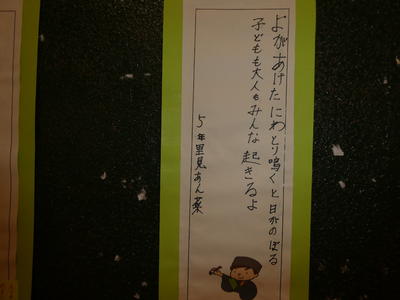 よがあけたにわとり鳴くと日がのぼる
子どもも大人もみんな起きるよ
5年里見あん薬